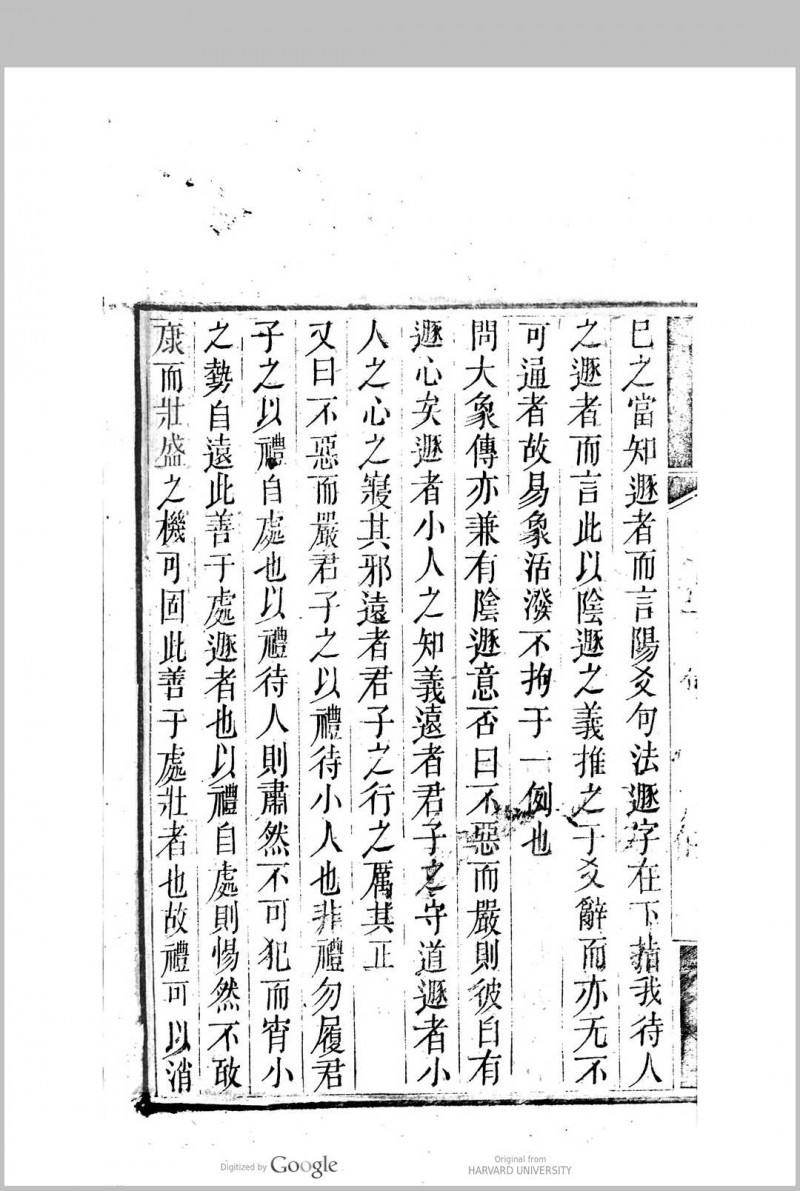 已之當知遯者而言陽爻句法遯字在下葢我待人
之遯者而言此以陰遯之義推之于爻辭而亦无不
可通者故易象活潑不拘于一例也
問大象傳亦兼有陰遯意否曰不惡而嚴則彼自有
遯心矣遯者小人之知義遠者君子之守道遯者小
人之心之寢其邪遠者君子之行之厲其正
又曰不惡而嚴君子之以禮待小人也非禮勿履君
子之以禮自處也以禮待人則肅然不可犯而宵小
之勢自遠此善于處遯者也以禮自處則惕然不敢
康而壯盛之機可固此善于處壯者也故禮可以消
Digitized by Google
Original from
HARVARD UNIVERSITY